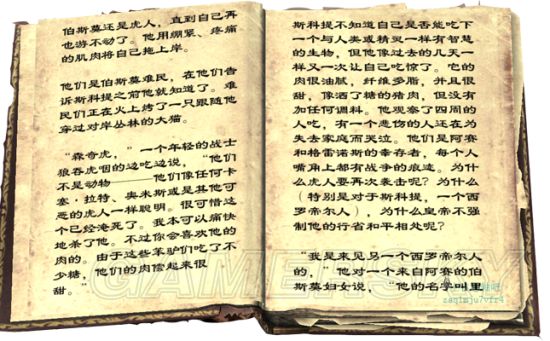 伯斯莫还是虎人，直到自己再
也游不动了。他用绷紧、疼痛
的肌肉将自己拖上岸。
他们是伯斯莫难民，在他们告
诉斯科提之前他就知道了。难
民们正在火上烤了一只跟随他
穿过对岸丛林的大猫。
“森奇虎，”一个年轻的战士
狼吞虎咽的边吃边说，“他们
不是动物——他们像任何卡
塞·拉特、奥米斯或是其他可
恶的虎人一样聪明。很可惜这
个已经淹死了。我本可以痛快
地杀了他。不过你会喜欢他的
肉的。由于这些笨驴们吃了不
少糖，他们的肉偿起来很
甜。”
斯科提不知道自己是否能吃下
一个与人类或精灵一样有智慧
的生物，但他像过去的几天一
样又一次让自己吃惊了。它的
肉很油腻，纤维多脂，并且很
甜，像洒了糖的猪肉，但没有
加任何调料。他观察了四周的
人吃，有一个悲伤的人还在为
失去家庭而哭泣。他们是阿赛
和格雷诺斯的幸存者，每个人
嘴角上都有战争的痕迹。为什
么虎人要再次袭击呢？为什么
（特别是对于斯科提，一个西
罗帝尔人），为什么皇帝不强
制他的行省和平相处呢？
“我是来见另一个西罗帝尔人
的，”他对一个来自阿赛的伯
斯莫妇女说，“他的名字叫里
GAMERSKY
zaqtmju7vfr4